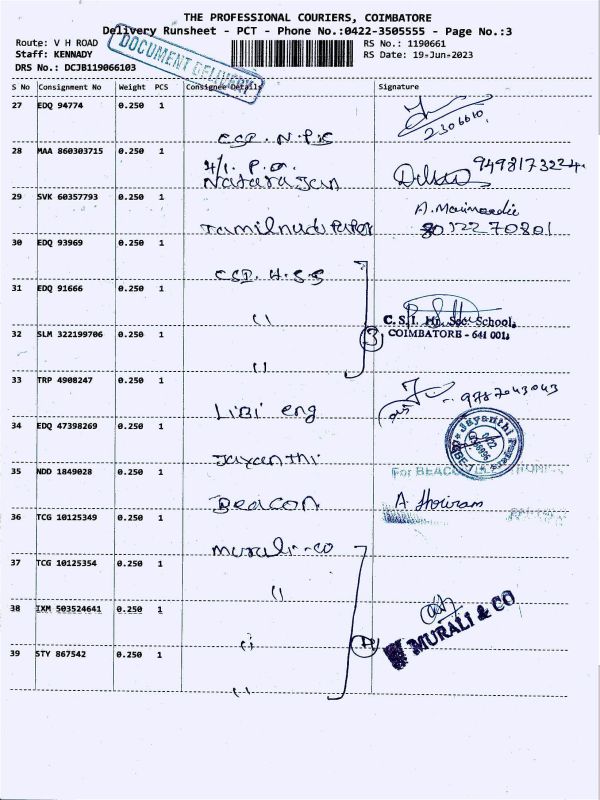 THE PROFESSIONAL COURIERS, COIMBATORE
Delivery Runsheet - PCT - Phone No.:0422-3505555 - Page No.:3
Route: V H ROAD
RS No.: 1190661
Staff: KENNADY
RS Date: 19-Jun-2023
DRS No.: DCJB119066103
DOCUMENT DELIVERY
S No Consignment No Weight PCS Consignee Details Signature
27 EDQ 94774 0.250 1
2306610
CSI. N.P.S
28 MAA 860303715 0.250 1
H/I. P.O.
9498173224
Natarajan
29 SVK 60357793 0.250 1
Tamilnadu
8012270801
30 EDQ 93969 0.250 1
CSI. H.S.S
31 EDQ 91666 0.250 1
"
C.S.I. Hr. Sec. School,
32 SLM 322199706 0.250 1
3
COIMBATORE - 641 001.
"
33 TRP 4908247 0.250 1
9787043043
Libi eng
34 EDQ 47398269 0.250 1
Jayanthi Papers
Jayanthi
35 NDD 1849028 0.250 1
For BEACON
Beacon
36 TCG 10125349 0.250 1
murali-co
37 TCG 10125354 0.250 1
"
38 IXM 503524641 0.250 1
MURALI & CO
"
39 STY 867542 0.250 1
"